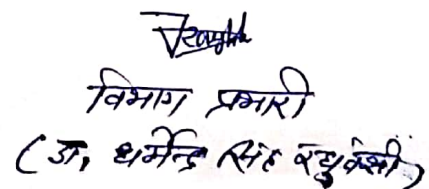 विभाग प्रभारी
(डा, धर्मेन्द्र सिंह रघुवंशी)